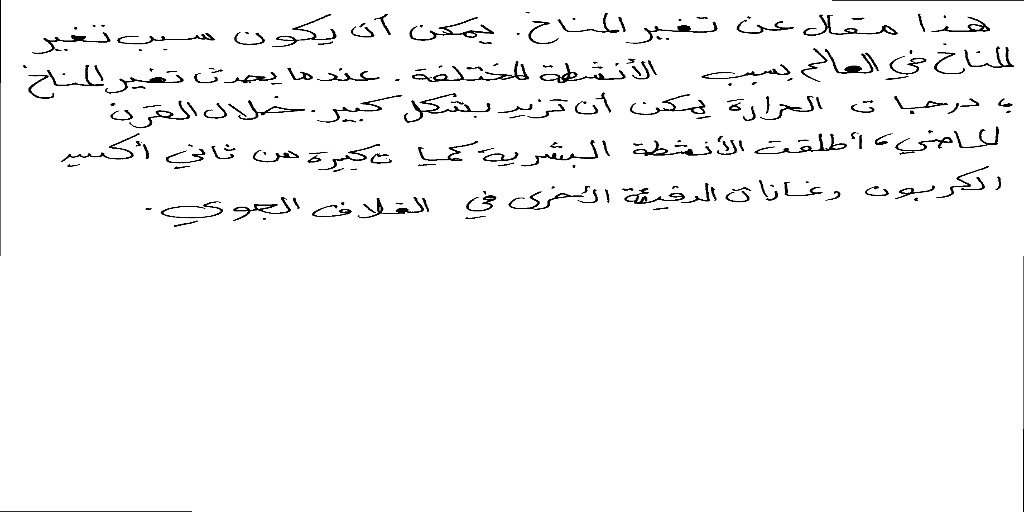 هذا مقال عن تغير المناخ. يمكن أن يكون سبب تغير
المناخ في العالم بسبب الأنشطة المختلفة. عندما يحدث تغير المناخ
، درجات الحرارة يمكن أن تزيد بشكل كبير. خلال القرن
الماضي، أطلقت الأنشطة البشرية كميات كبيرة من ثاني أكسيد
الكربون وغازات الدفيئة الأخرى في الغلاف الجوي.